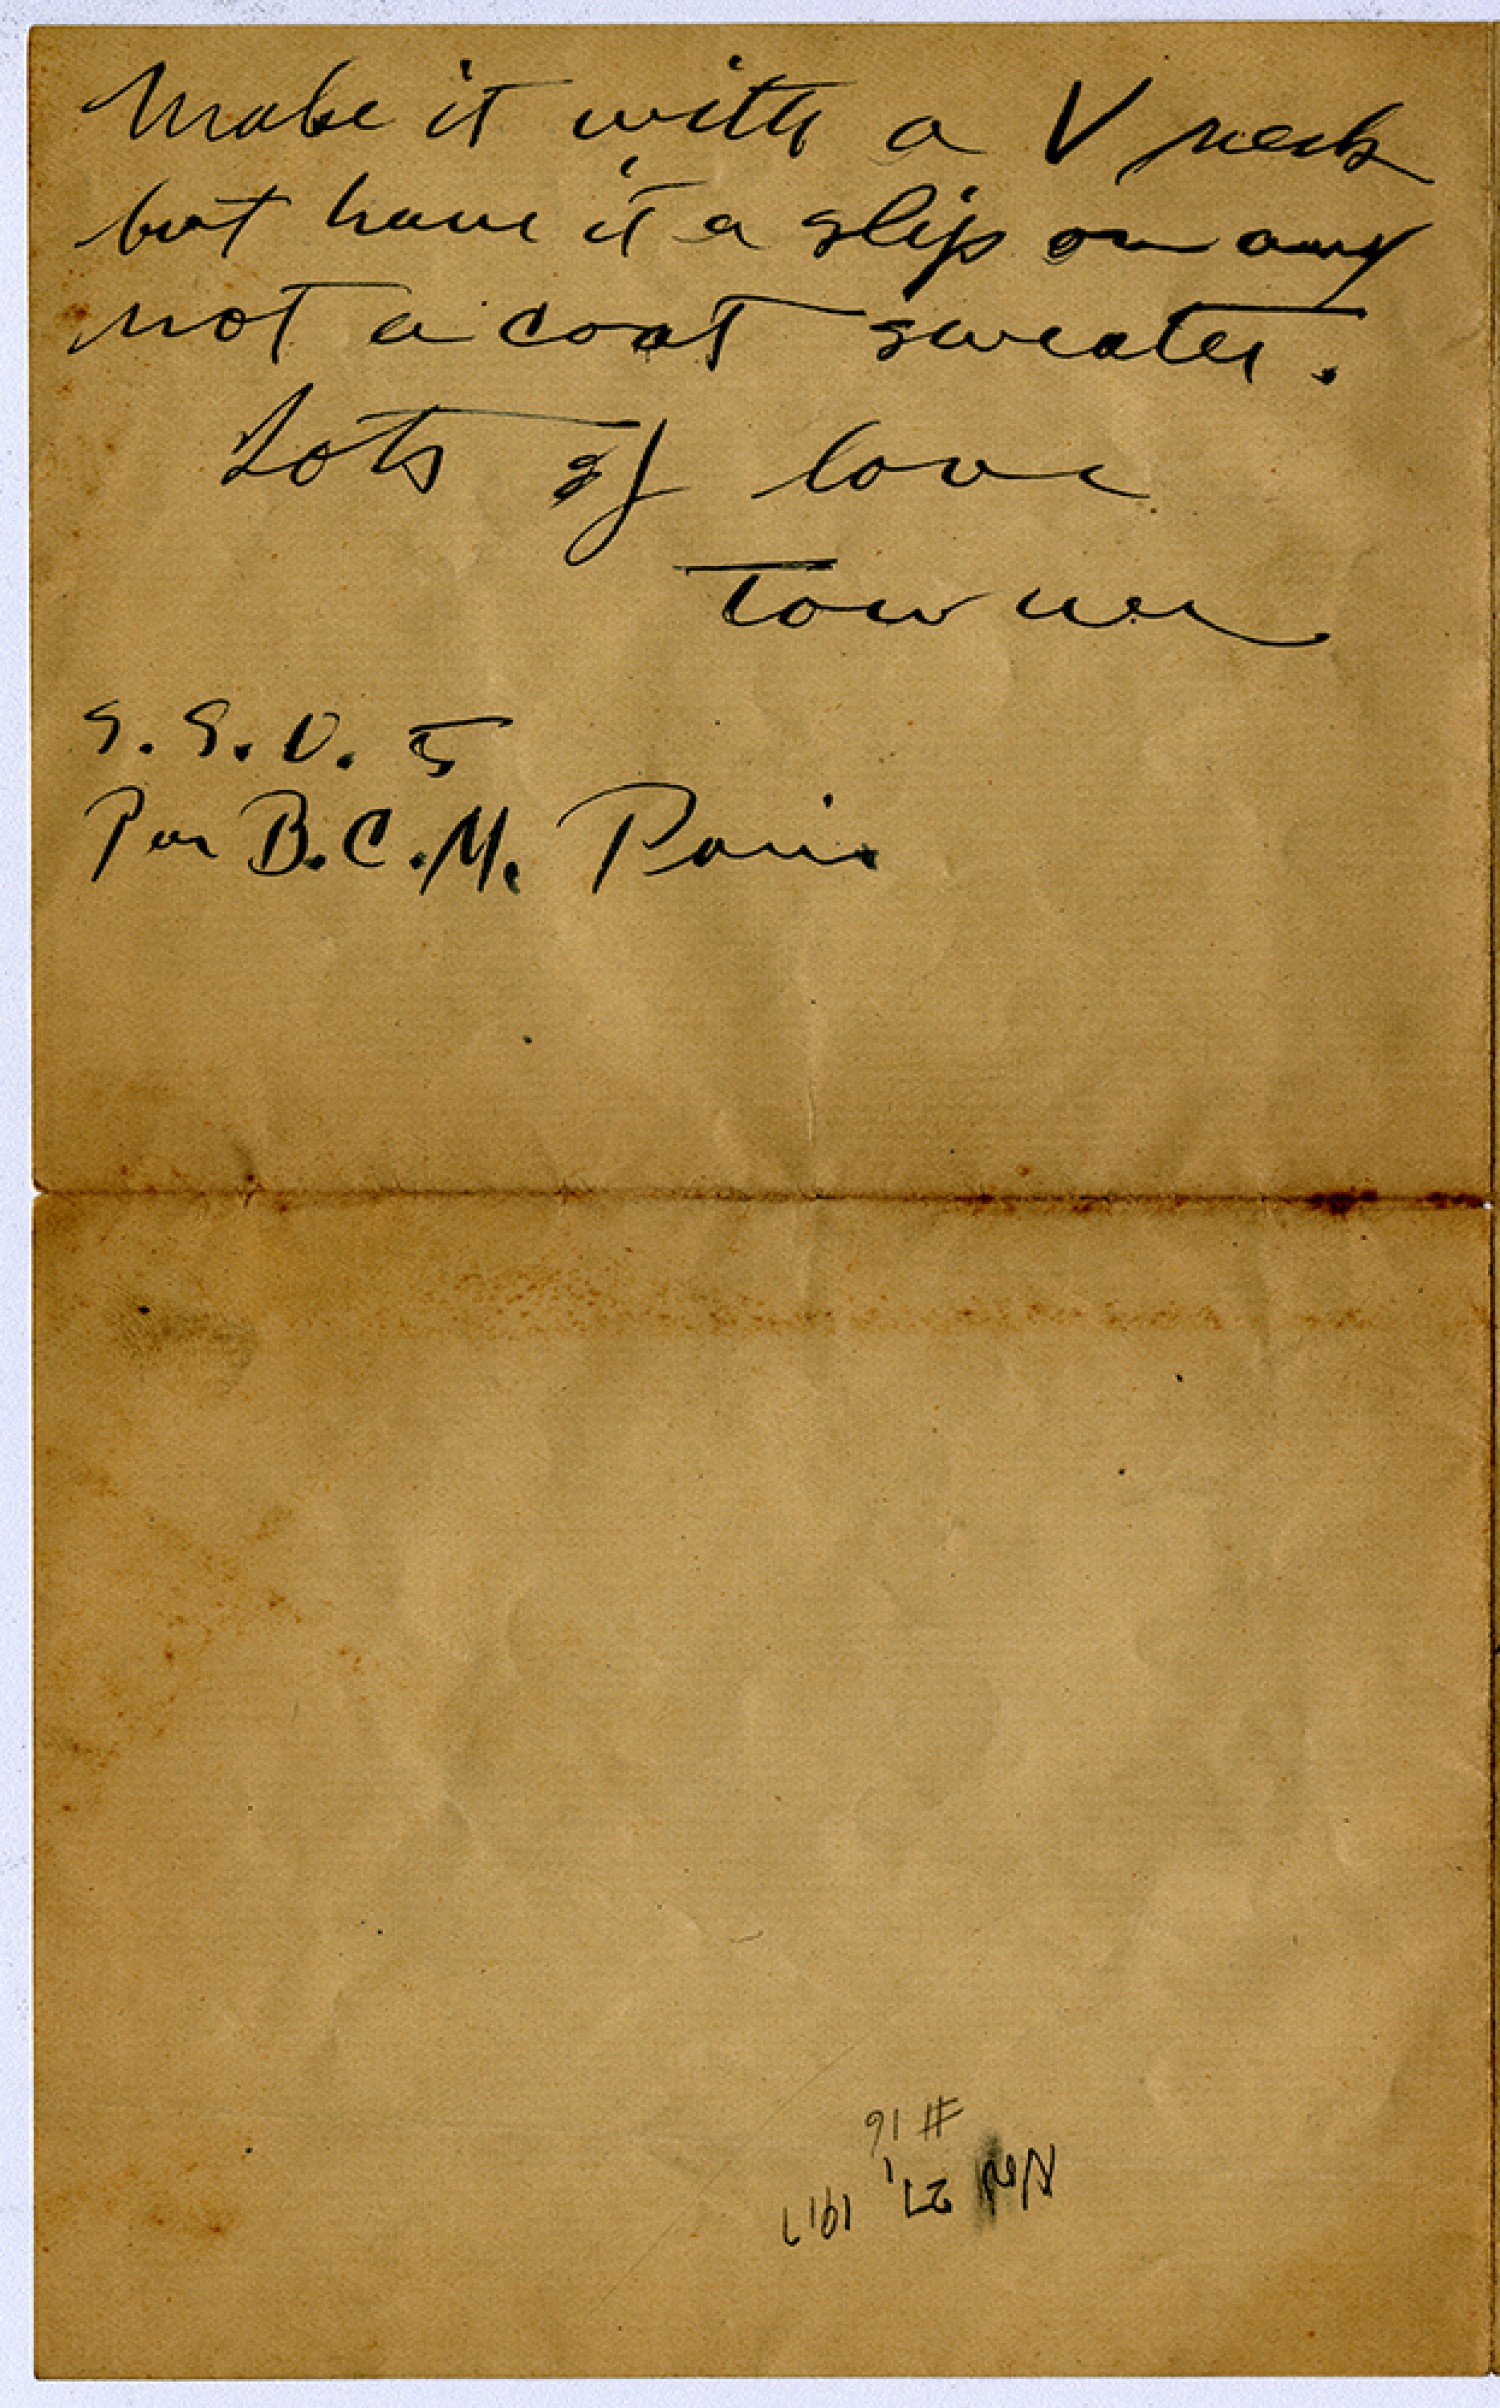 Make it with a V neck
but have it a slip on and
not a coat sweater.
Lots of love
Towner
S.S.U. 5
Par B.C.M. Paris
#16
Nov 27, 1917